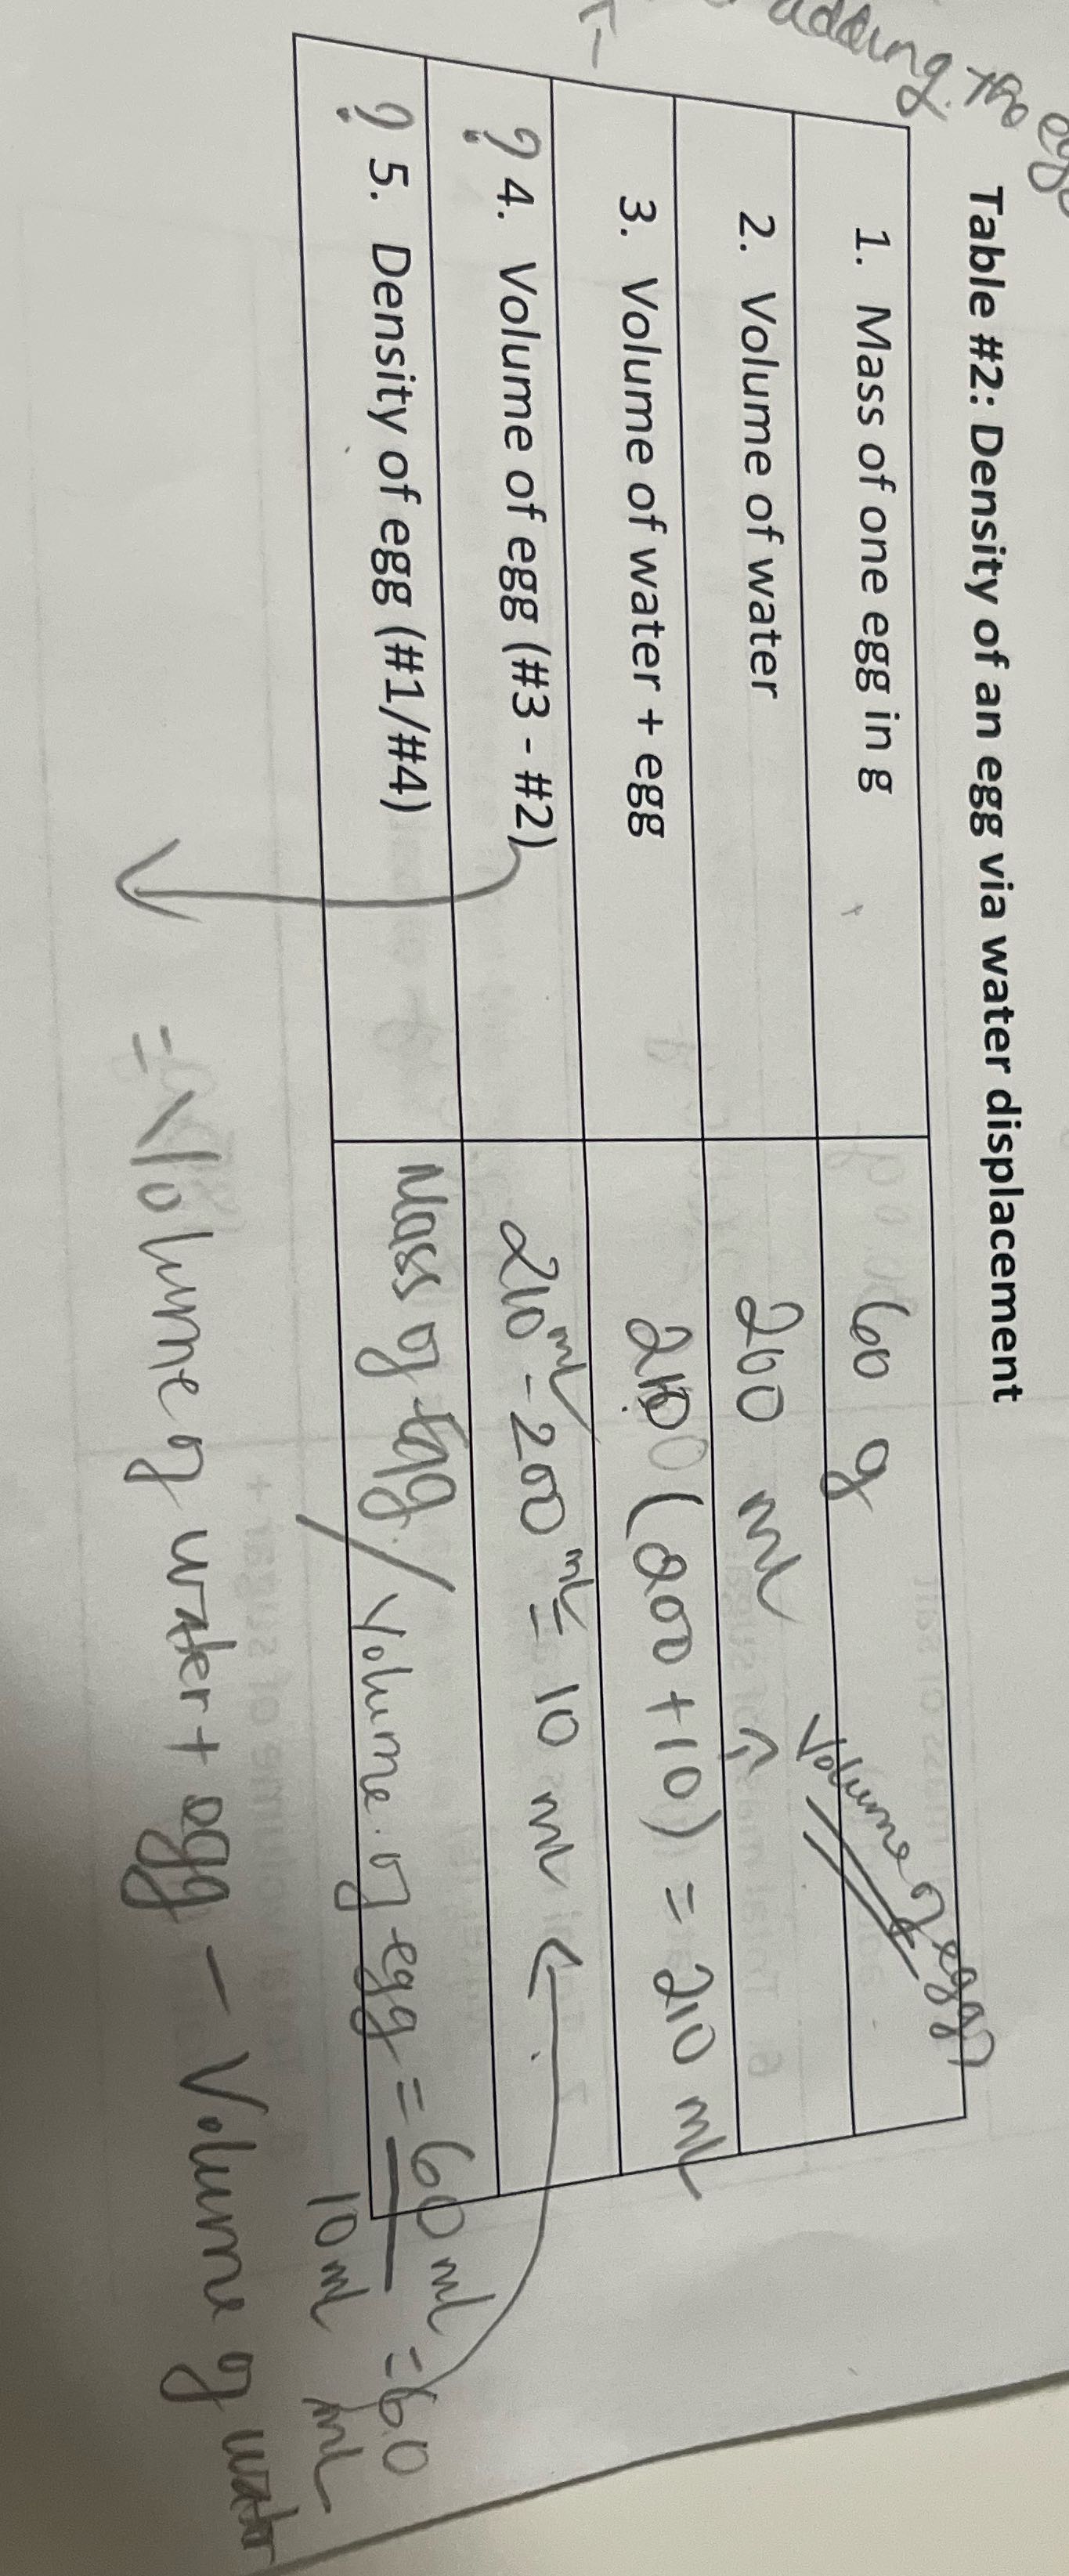 adding the egg
Table #2: Density of an egg via water displacement
1. Mass of one egg in g 60 g
Volume of egg
2. Volume of water 200 ml
3. Volume of water + egg 210 (200 + 10) = 210 ml
? 4. Volume of egg (#3 - #2) 210 ml - 200 ml = 10 ml
? 5. Density of egg (#1/#4) Mass of egg / Volume of egg = 60 ml = 6.0
10 ml ml
= Volume of water + egg - Volume of water